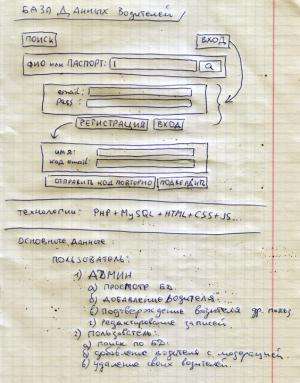 БАЗА ДАННЫХ ВОДИТЕЛЕЙ
ПОИСК ВХОД
ФИО или ПАСПОРТ:
email:
pass:
РЕГИСТРАЦИЯ ВХОД
имя:
код email:
ОТПРАВИТЬ КОД ПОВТОРНО ПОДТВЕРДИТЬ
ТЕХНОЛОГИИ: PHP + MySQL + HTML + CSS + JS...
ОСНОВНЫЕ ДАННЫЕ:
ПОЛЬЗОВАТЕЛЬ:
1) АДМИН
а) ПРОСМОТР БД
б) ДОБАВЛЕНИЕ ВОДИТЕЛЯ
в) ПОДТВЕРЖДЕНИЕ ВОДИТЕЛЯ др. польз
с) РЕДАКТИРОВАНИЕ ЗАПИСЕЙ
2) ПОЛЬЗОВАТЕЛЬ:
а) ПОИСК ПО БД
б) ДОБАВЛЕНИЕ ВОДИТЕЛЯ С МОДЕРАЦИЕЙ
в) УДАЛЕНИЕ СВОИХ ВОДИТЕЛЕЙ.